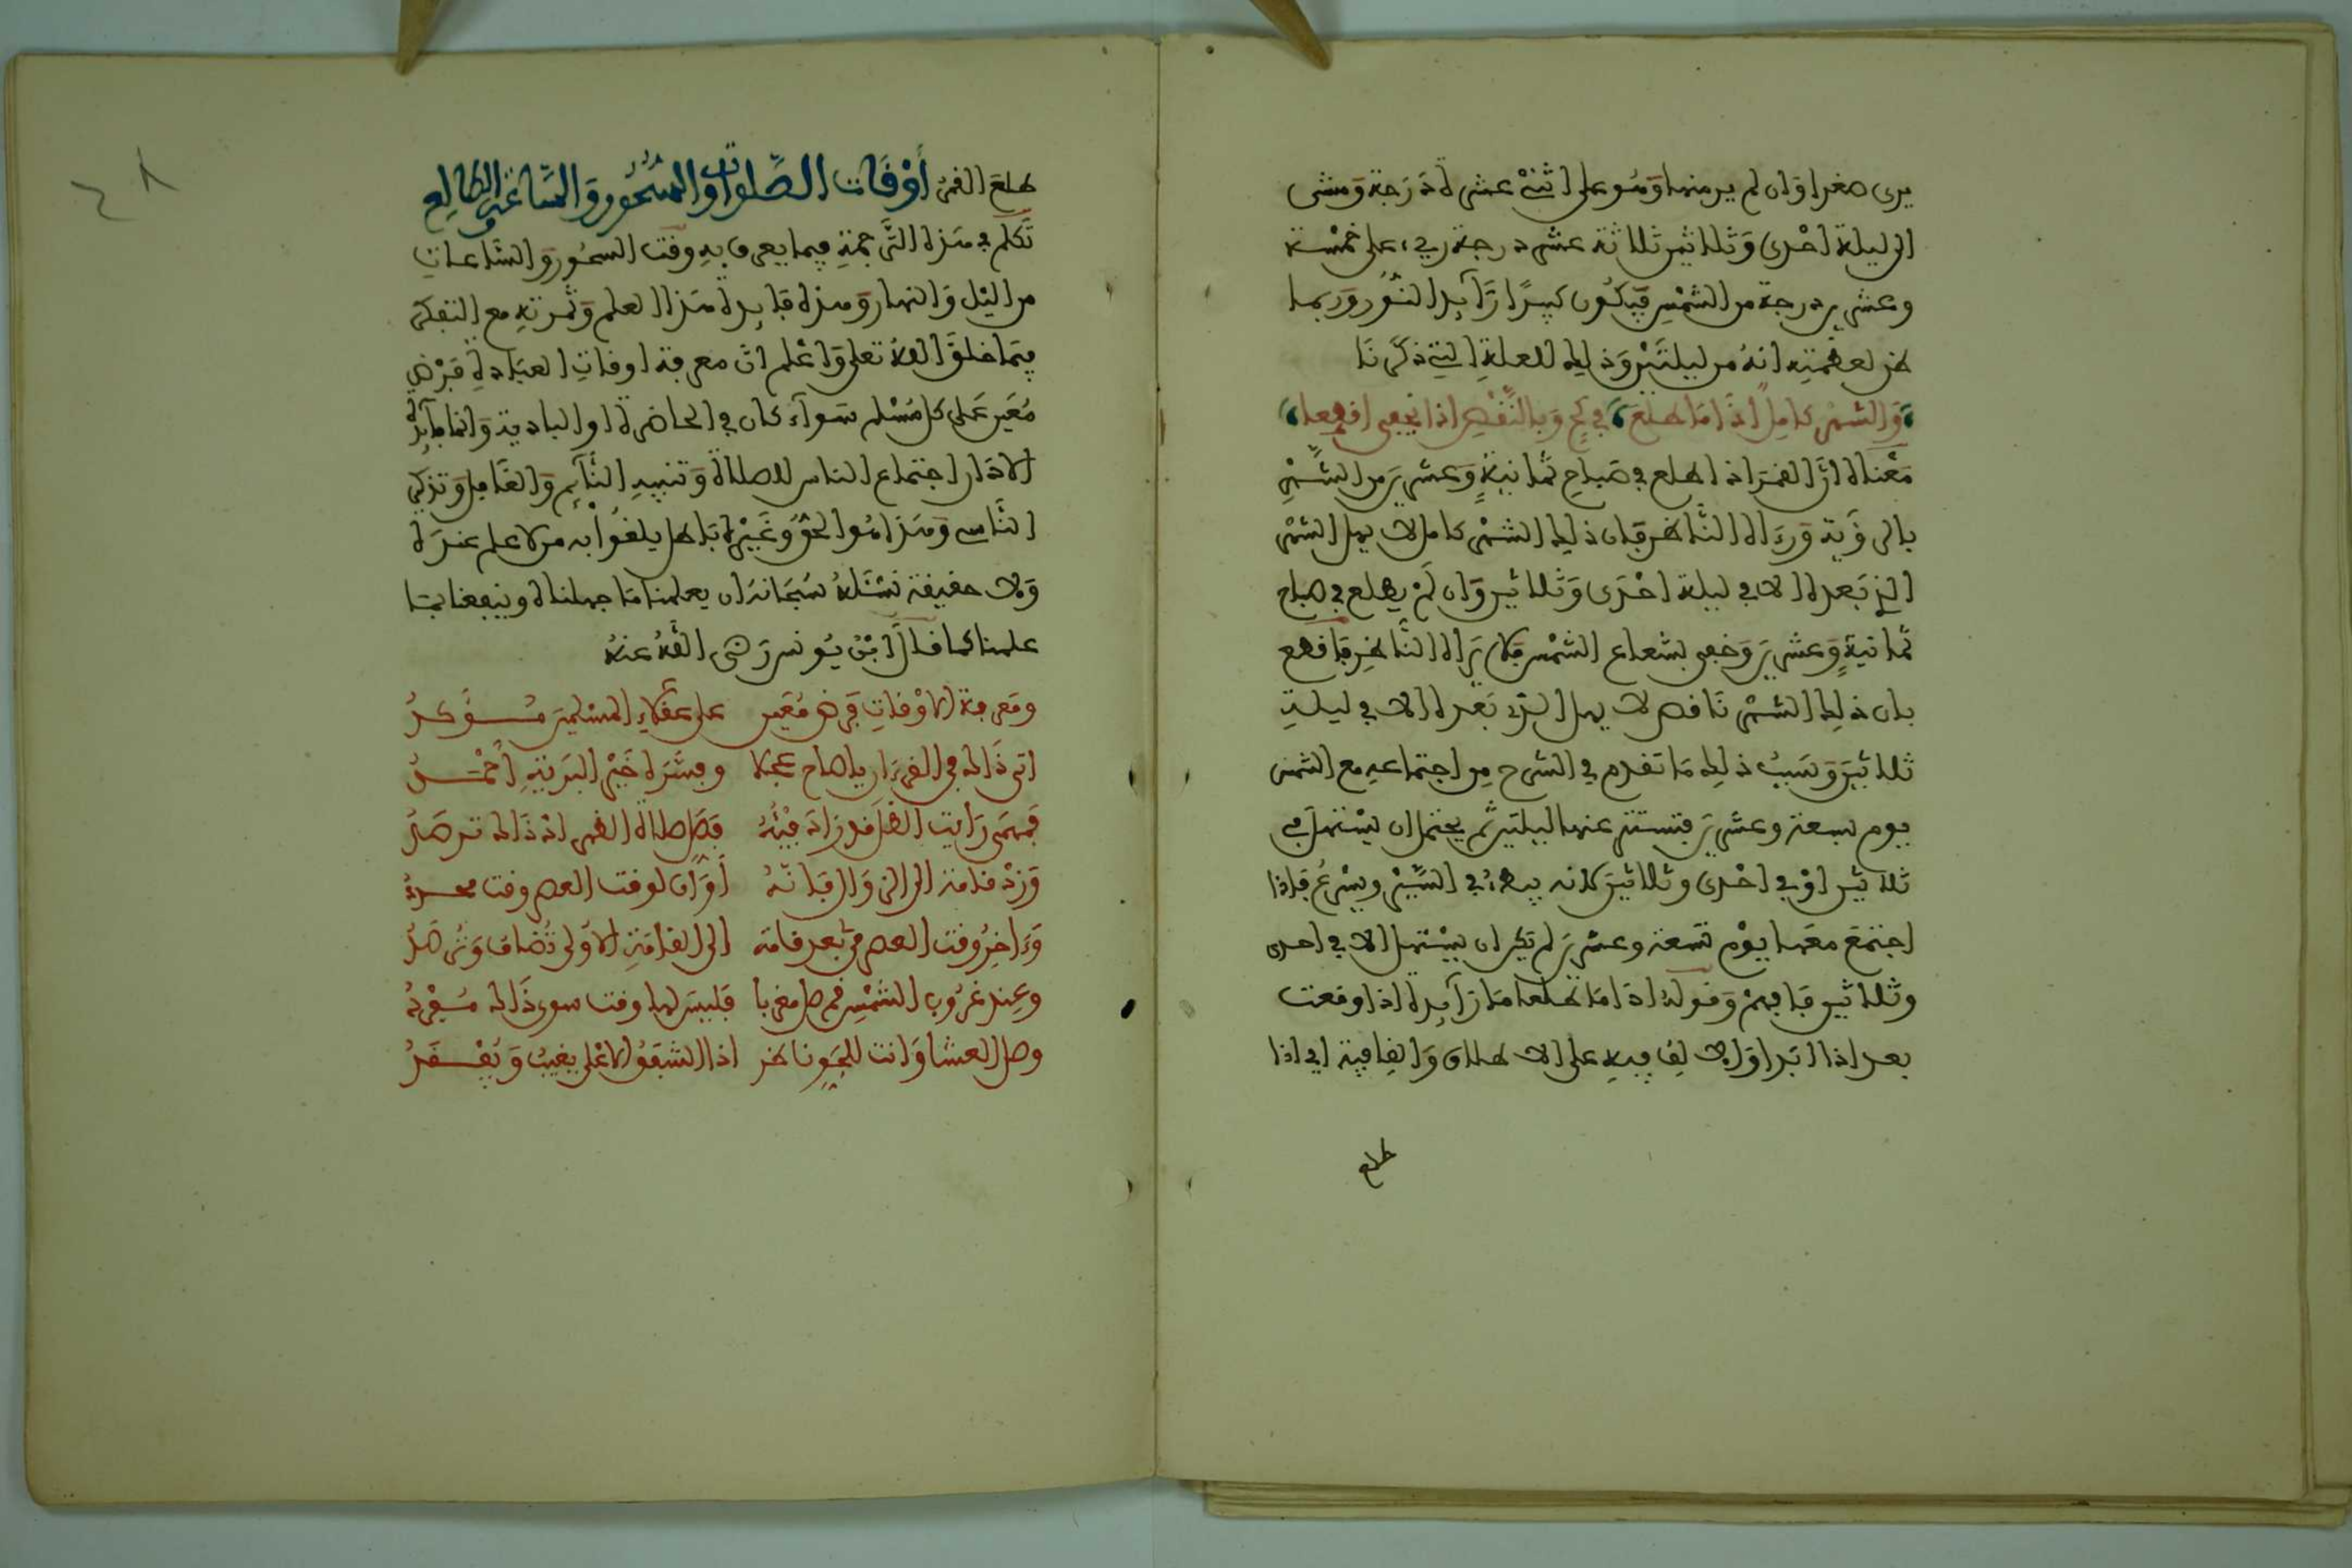 يرى صغيرا وان لم ير منها وهو على اثنتي عشرة درجة ومشى
الى ليلة احدى وثلاثين ثلاثة عشر درجة ريء على خمسة
وعشرين درجة من الشمس فيكون كبيرا زآيد النور وربما
ظن لعظمته انه من ليلتين وذلك للعلة التي ذكرنا
والشهر كامل اذا ما طلع في كح وبالنقص اذا يخفى اقطعا
معناه ان القمر اذا طلع في صباح ثمانية وعشرين من الشهر
بالرؤية ورءاه الناظر فان ذلك الشهر كامل لا يهل الشهر
الذي بعده الا في ليلة احدى وثلاثين وان لم يطلع في صباح
ثمانية وعشرين وخفي بشعاع الشمس فلا يراه الناظر فاقطع
بان ذلك الشهر ناقص لا يهل الذي بعده الا في ليلة
ثلاثين وسبب ذلك ما تقدم في الشرح من اجتماعه مع الشمس
يوم تسعة وعشرين فتستتر عنها ليلتين ثم يحتمل ان يستهل في
ثلاثين او في احدى وثلاثين لانه يبطئ في السير ويسرع فاذا
اجتمع معها يوم تسعة وعشرين لم يكن ان يستهل الا في احدى
وثلاثين فافهم وقوله اذا ما طلعا ما زآيدة اذا وقعت
بعد اذا ابدا والالف فيه على الاطلاق والقافية اي اذا
طلع
٤٨
طلع القمر أوقات الصلوات والسحور والساعة والطالع
تكلم في هذه الترجمة فيما يعرف به وقت السحور والساعات
من اليل والنهار وهذه فايدة هذا العلم وثمرته مع التفكر
فيما خلق الله تعلى واعلم ان معرفة اوقات العبادة فرض
معين على كل مسلم سوآء كان في الحاضرة او البادية وانما فآئدة
الاذان اجتماع الناس للصلاة وتنبيه النآئم والغافل وتذكير
الناسي وهذا هو الحق وغيره باطل يلغوا به من لا علم عنده
ولا حقيقة نسئله سبحانه ان يعلمنا ما جهلناه وينفعنا بما
علمنا كما قال ابن يونس رضي الله عنه
ومعرفة الاوقات فرض معين على عقلاء المسلمين مؤكد
اتى ذاك في القرءان يا صاح مجملا وفسره خير البرية احمد
فمهمى رأيت الظل قد زاد فيئه فصل صلاة الظهر اذ ذاك ترصد
وزد قامة الى الزوال فانه أوان لوقت العصر وقت محدد
وءاخر وقت العصر في بعد قامة الى القامة الاولى تضاف وترصد
وعند غروب الشمس قم صل مغربا فليس لها وقت سوى ذاك مفرد
وصل العشا وانت للجو ناظر اذا الشفق الاعلى يغيب ويفقد